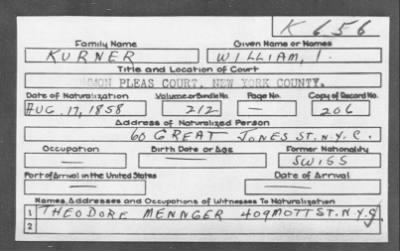 K 656
Family Name Given Name or Names
KURNER WILLIAM, I.
Title and Location of Court
COMMON PLEAS COURT, NEW YORK COUNTY.
Date of Naturalization Volume or Bundle No. Page No. Copy of Record No.
AUG. 17, 1858 212 — 206
Address of Naturalized Person
60 GREAT JONES ST. N.Y.C.
Occupation Birth Date or Age Former Nationality
— — SWISS
Port of Arrival in the United States Date of Arrival
— —
Names, Addresses and Occupations of Witnesses To Naturalization
1 THEODORE MENNGER 409 MOTT ST. N.Y.C.
2